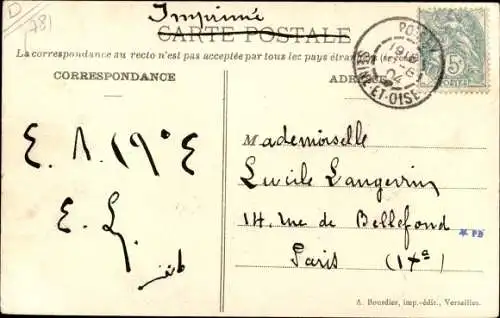 D
78
Imprimé
CARTE POSTALE
La correspondance au recto n'est pas acceptée par tous les pays étrangers
CORRESPONDANCE
ADRESSE
SEINE-ET-OISE
04
5c
POSTES
Mademoiselle
Lucile Langevin
14, rue de Bellefond
Paris (IXe)
E. L.
* PD
A. Bourdier, imp.-édit., Versailles.